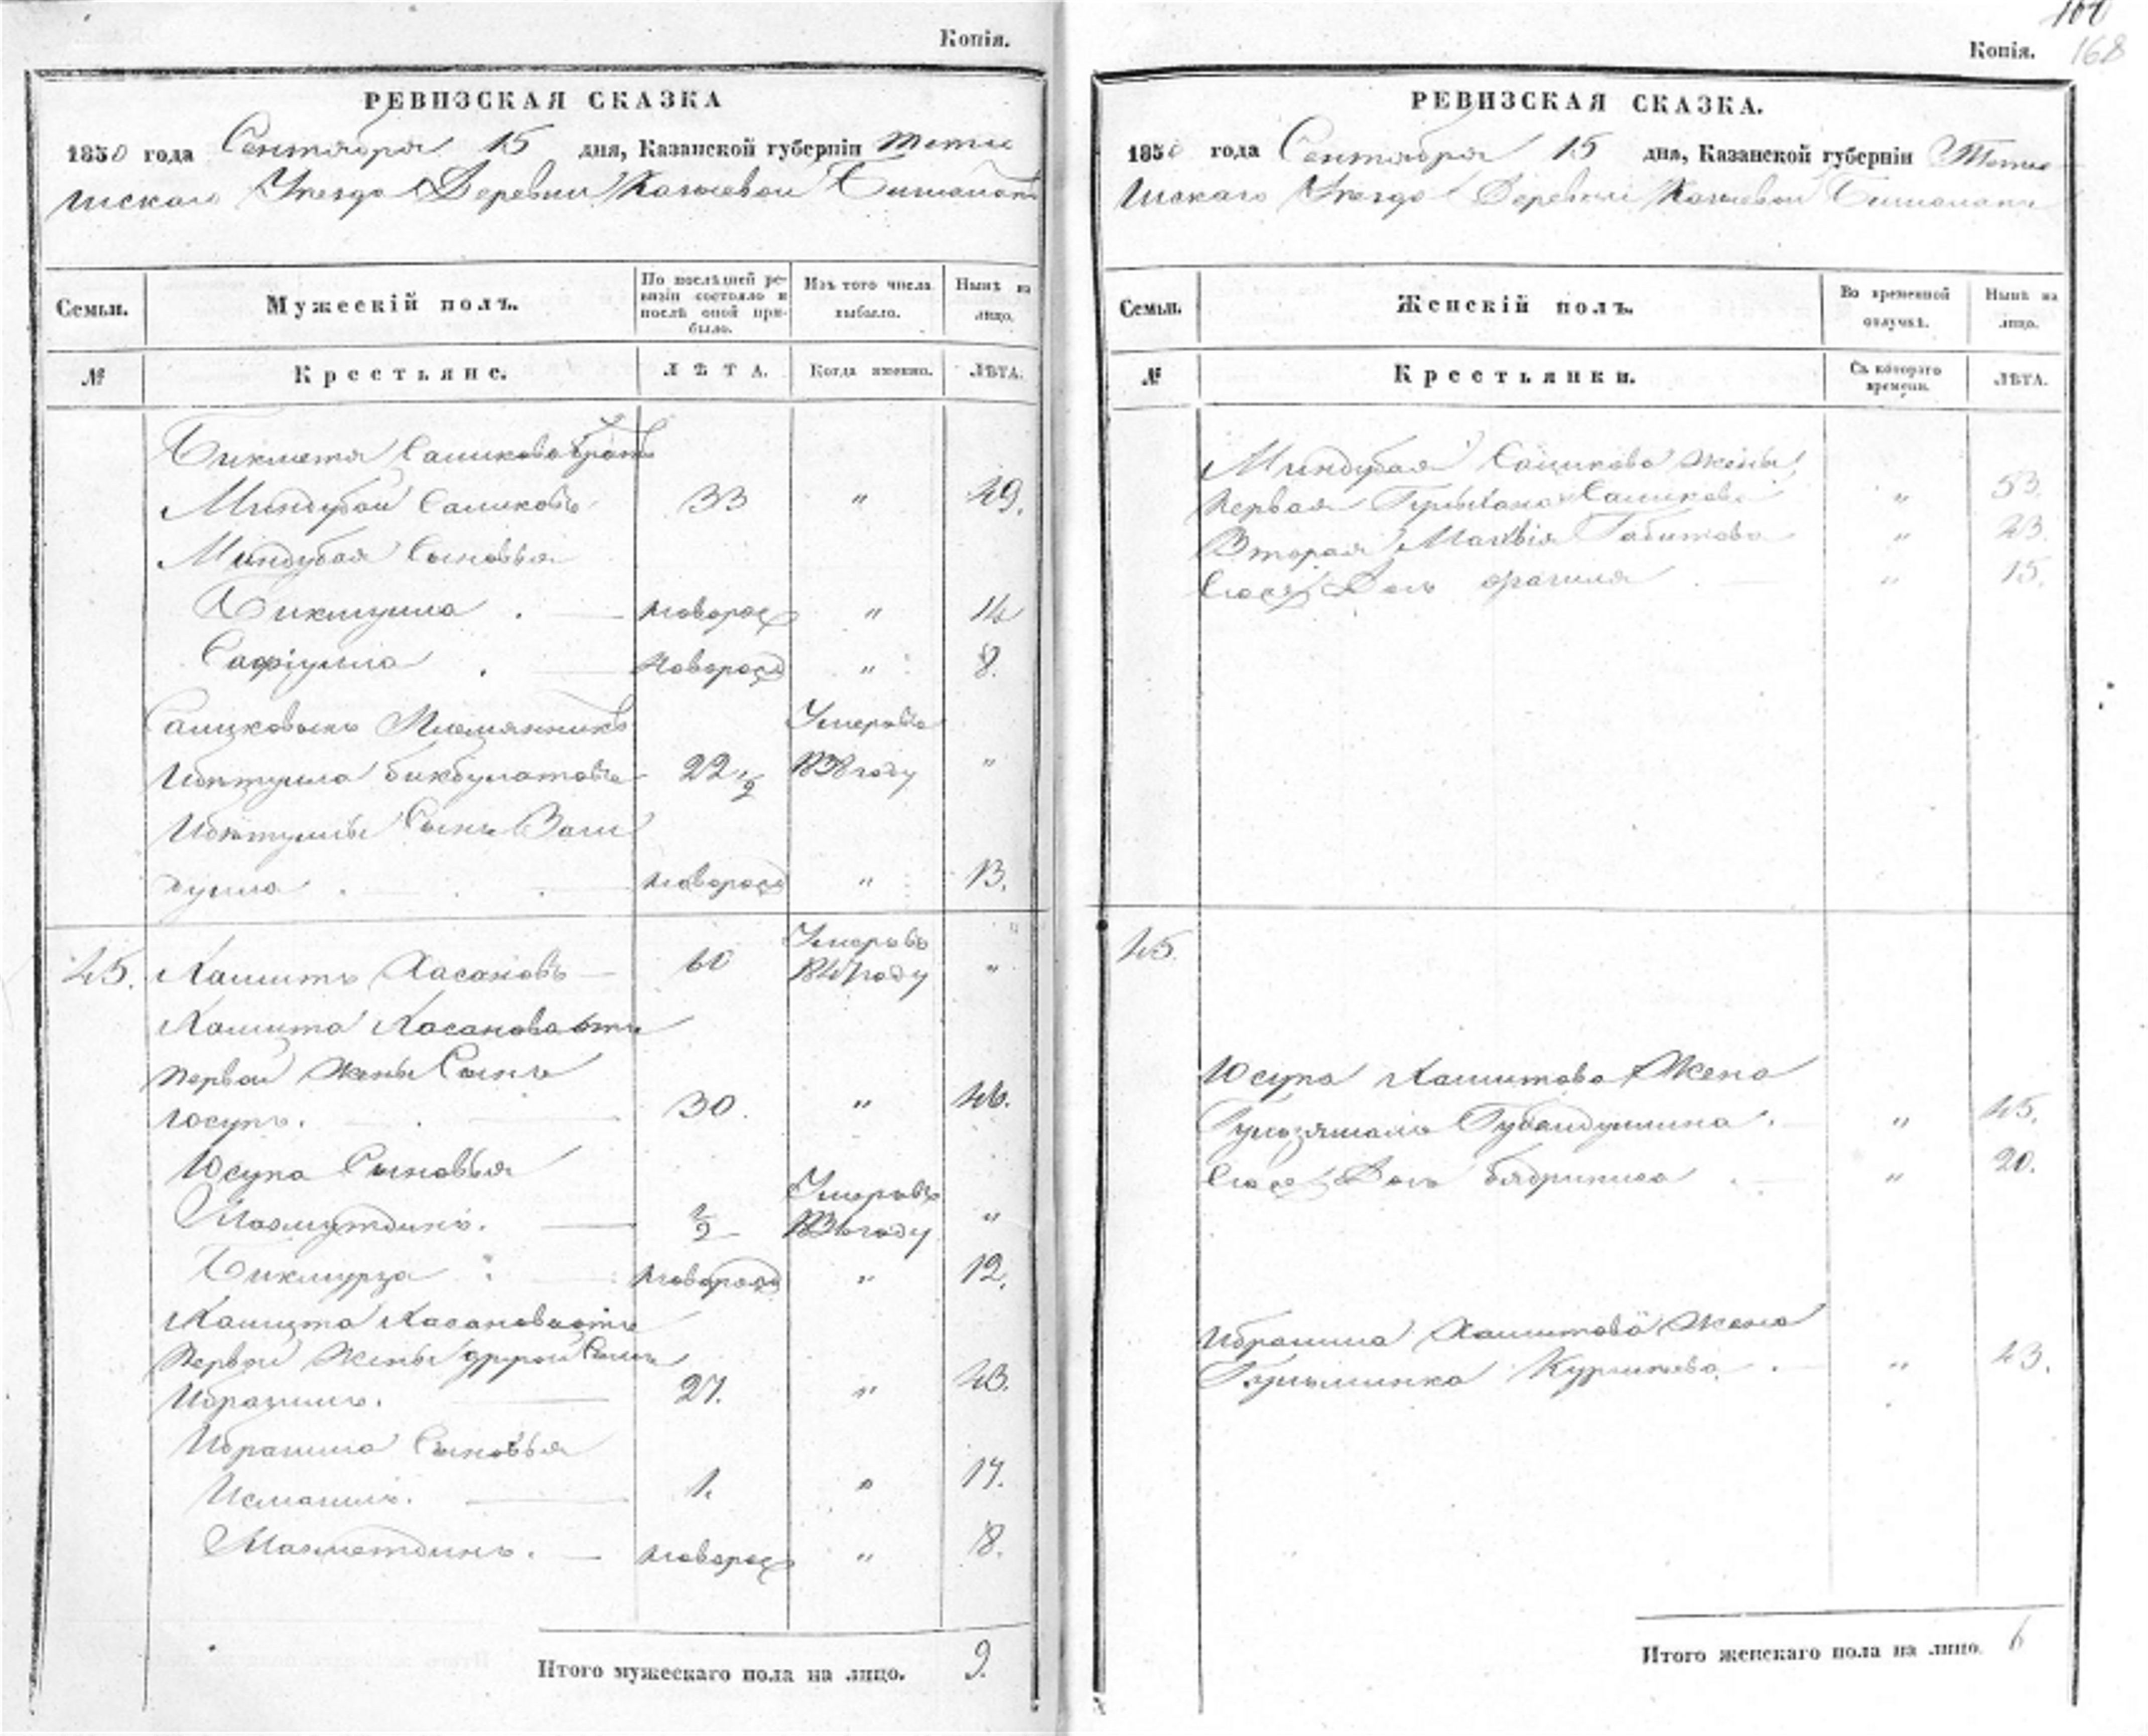 Копія.
РЕВИЗСКАЯ СКАЗКА
1850 года Сентября 15 дня, Казанской губерніи Тетю
шскаго Уезда Деревни
Семьи.
Мужескій полъ.
По послѣдней ре-
визіи состояло и
послѣ оной при-
было.
Изъ того числа
выбыло.
Нынѣ на
лицо.
№
Крестьяне.
ЛѢТА.
Когда именно.
ЛѢТА.
Бикметя Саликова братъ
Миндубай Саликовъ 33 " 49.
Миндубая Сыновья
Бикмулла . новорож " 14
Сафіулла . новорож " 8.
Саликовыхъ Племянникъ Умеръ въ
Ибятулла Бикбулатовъ 22 1/2 1838 году "
Ибятуллы Сынъ Вали
дулла . новорож " 13.
45. Хамитъ Хасановъ 60 Умеръ въ 1847 году "
Хамита Хасанова отъ
первой жены Сынъ
Юсупъ. 30. " 46.
Юсупа Сыновья
Махмутдинъ. 1/2 Умеръ въ 1836 году "
Бикмурза новорож " 12.
Хамита Хасанова отъ
Первой жены другой Сынъ
Ибрагимъ. 27. " 43.
Ибрагима Сыновья
Исмагилъ. 1. " 17.
Махметдинъ. новорож " 8.
Итого мужескаго пола на лицо. 9.
168
Копія.
РЕВИЗСКАЯ СКАЗКА.
1850 года Сентября 15 дня, Казанской губерніи Тетю
шскаго Уезда Деревни
Семьи.
Женскій полъ.
Во временной
отлучкѣ.
Нынѣ на
лицо.
№
Крестьянки.
Съ котораго
времени.
ЛѢТА.
Миндубая Саликова жены,
первая Саликова " 53.
Вторая Габитова " 23.
" 15.
45.
Юсупа Хамитова Жена
Губайдуллина . " 45.
" 20.
Ибрагима Хамитова Жена
. " 43.
Итого женскаго пола на лицо. 6